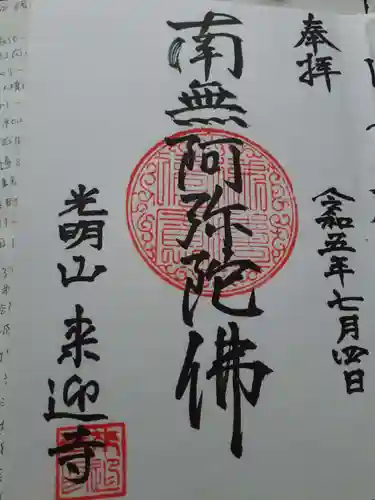 奉拝
令和五年七月四日
南無阿弥陀佛
光明山来迎寺